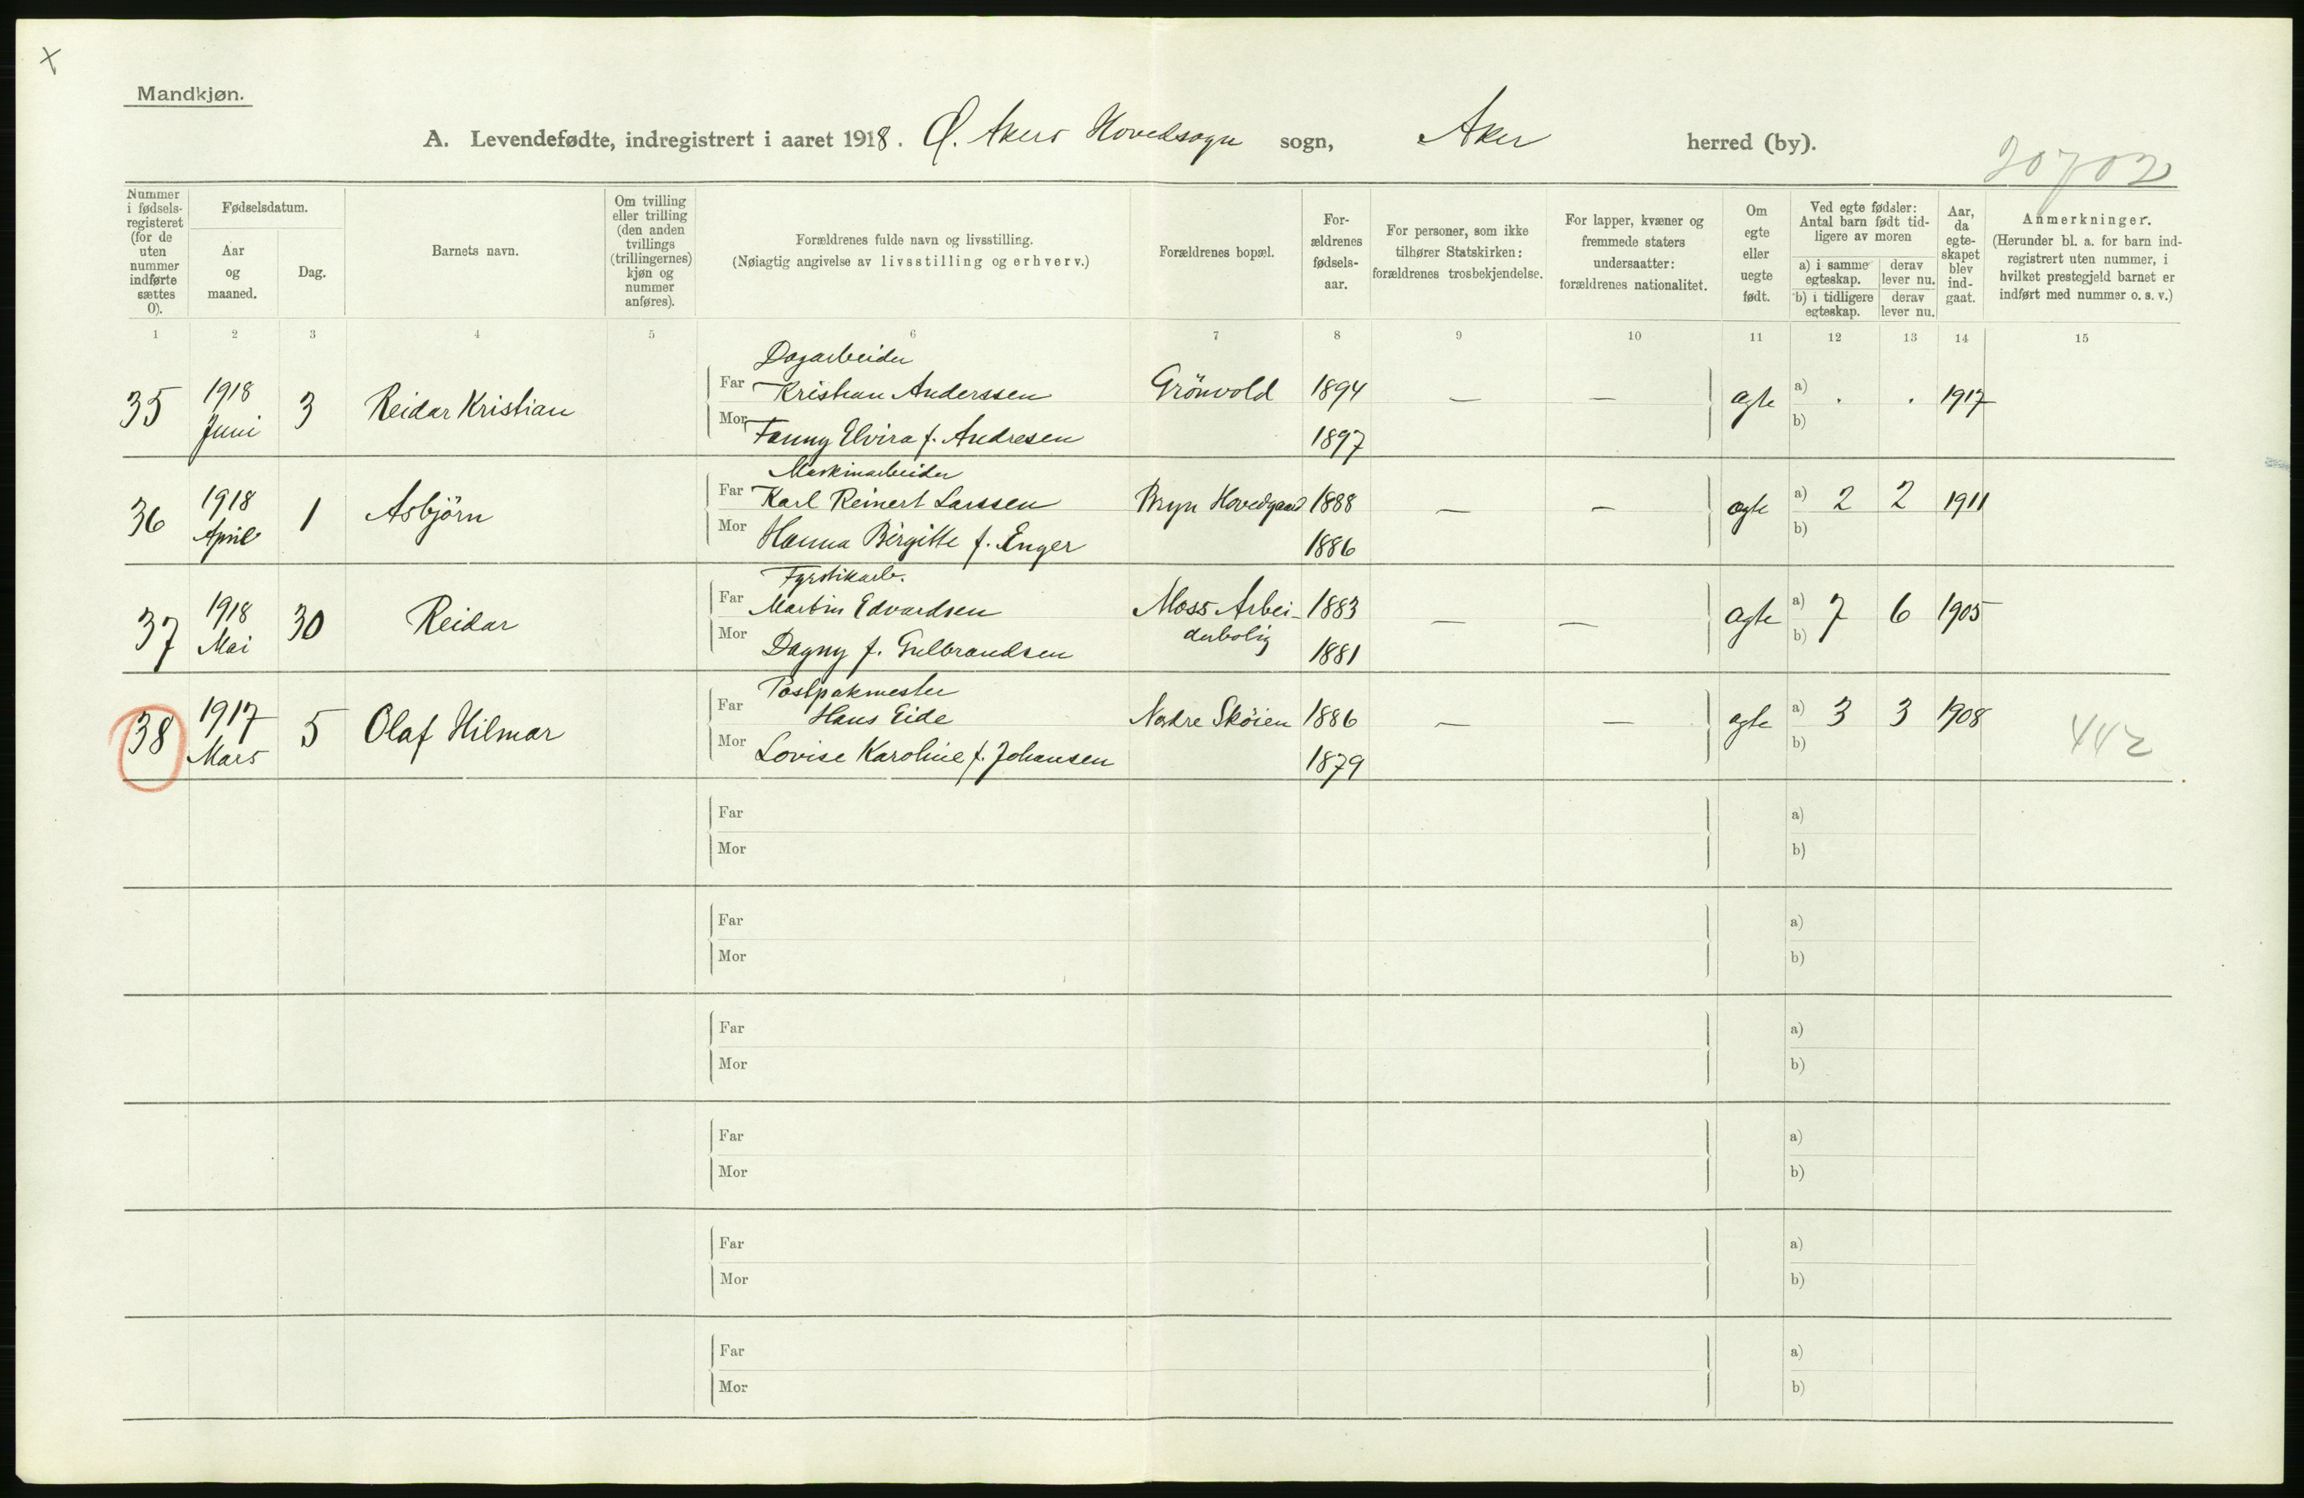 Mandkjøn.
A. Levendefødte, indregistrert i aaret 1918. Ø. Akers Hovedsogn sogn, Aker herred (by).
20702
Nummer i fødsels-registeret (for de uten nummer indførte sættes 0).
Fødselsdatum.
Aar og maaned.
Dag.
Barnets navn.
Om tvilling eller trilling (den anden tvillings (trillingernes) kjøn og nummer anføres).
Forældrenes fulde navn og livsstilling.
(Nøiagtig angivelse av livsstilling og erhverv.)
Forældrenes bopæl.
For-ældrenes fødsels-aar.
For personer, som ikke tilhører Statskirken: forældrenes trosbekjendelse.
For lapper, kvæner og fremmede staters undersaatter: forældrenes nationalitet.
Om egte eller uegte født.
Ved egte fødsler: Antal barn født tid-ligere av moren
a) i samme egteskap. derav lever nu.
b) i tidligere egteskap. derav lever nu.
Aar, da egte-skapet blev ind-gaat.
Anmerkninger.
(Herunder bl. a. for barn ind-registrert uten nummer, i hvilket prestegjeld barnet er indført med nummer o. s. v.)
1 2 3 4 5 6 7 8 9 10 11 12 13 14 15
Dagarbeider
35 1918 Juni 3 Reidar Kristian Far Kristian Anderssen Grönvold 1894 — — ægte a) . . 1917
Mor Fanny Elvira f. Andresen 1897 b)
Maskinarbeider
36 1918 April 1 Asbjörn Far Karl Reinert Larssen Bryn Hovedgaard 1888 — — ægte a) 2 2 1911
Mor Hanna Birgitte f. Enger 1886 b)
Fyrstikarb.
37 1918 Mai 30 Reidar Far Martin Edvardsen Moss Arbei-derbolig 1883 — — ægte a) 7 6 1905
Mor Dagny f. Gulbrandsen 1881 b)
Postpakmester
38 1917 Mars 5 Olaf Hilmar Far Hans Eide Nordre Sköien 1886 — — ægte a) 3 3 1908 442
Mor Lovise Karoline f. Johansen 1879 b)
Far a)
Mor b)
Far a)
Mor b)
Far a)
Mor b)
Far a)
Mor b)
Far a)
Mor b)
Far a)
Mor b)